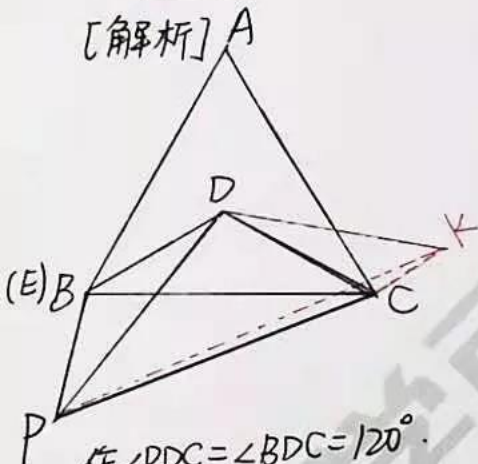 [解析] A
D
K
(E) B
C
P
作∠PDC=∠BDC=120°.